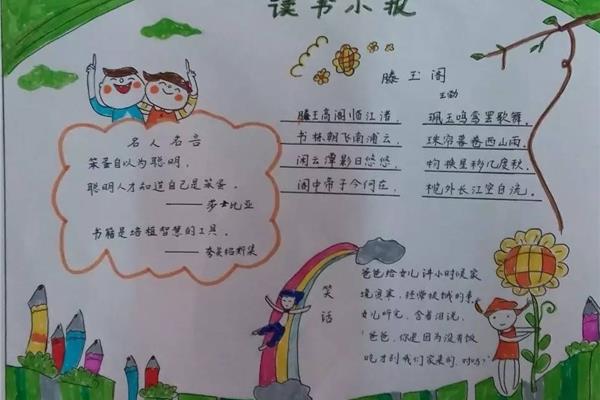 读书小报
滕王阁
王勃
滕王高阁临江渚， 佩玉鸣鸾罢歌舞。
书栋朝飞南浦云， 珠帘暮卷西山雨。
闲云潭影日悠悠， 物换星移几度秋。
阁中帝子今何在， 槛外长江空自流。
名人名言
笨蛋自以为聪明，
聪明人才知道自己是笨蛋。
——莎士比亚
书籍是培植智慧的工具。
笑话
爸爸给女儿讲小时候家
境贫寒，经常挨饿的事，
女儿听完，含着泪说，
“爸爸，你是因为没有饭
吃才到我们家来的，对吗？”